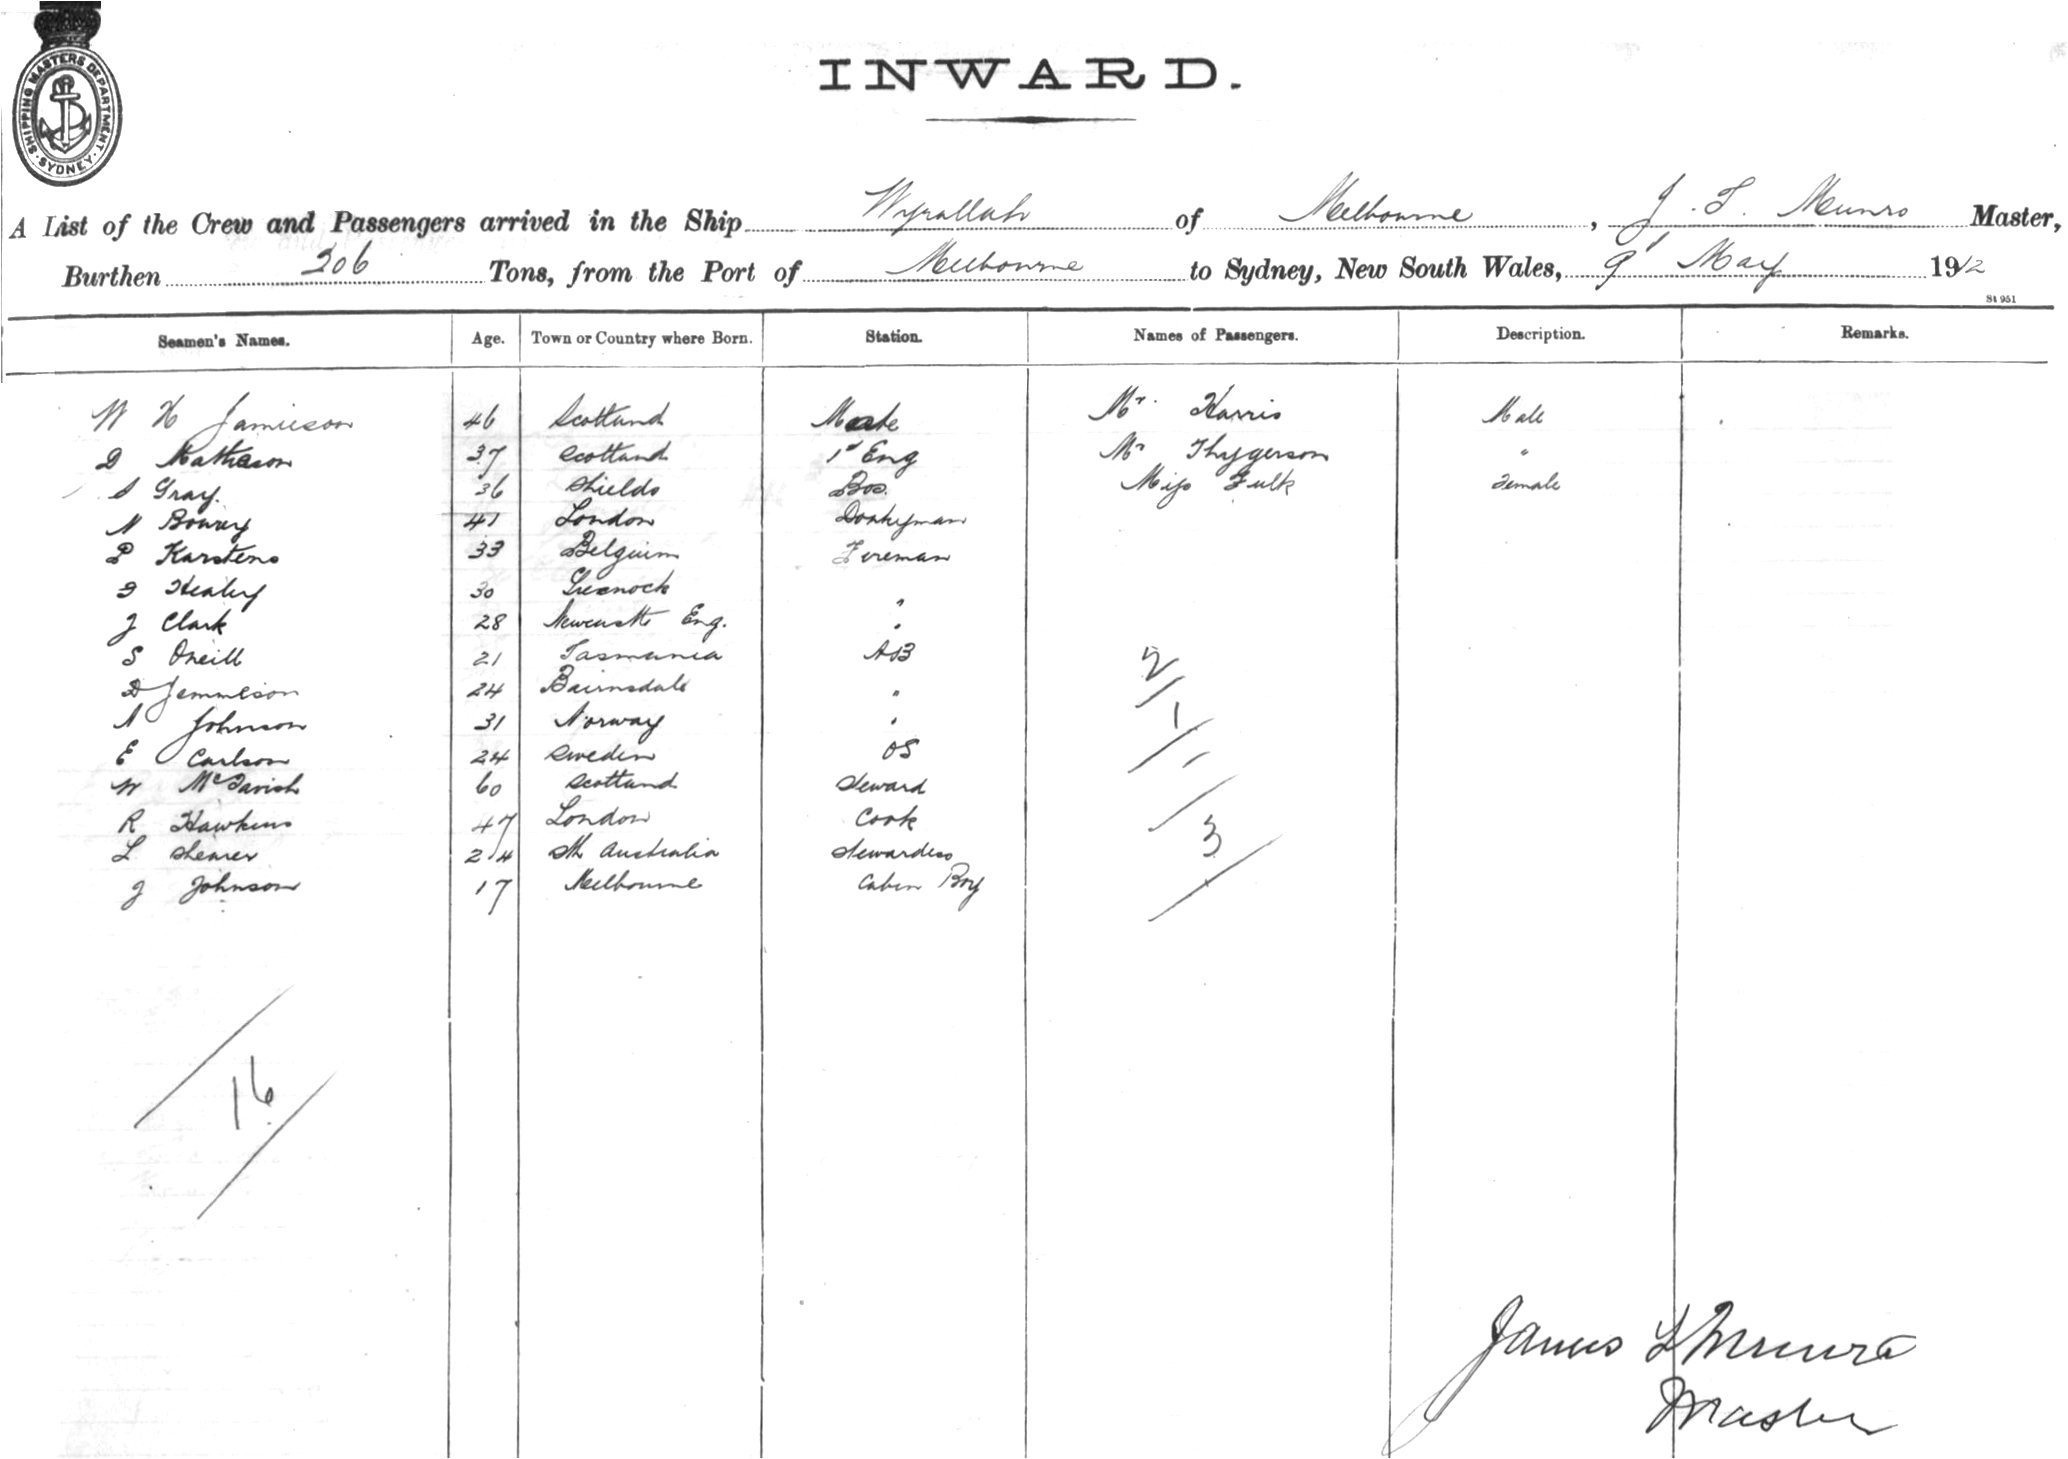 SHIPPING MASTERS DEPARTMENT. SYDNEY
INWARD.
A List of the Crew and Passengers arrived in the Ship Wyrallah of Melbourne, J. T. Munro Master,
Burthen 306 Tons, from the Port of Melbourne to Sydney, New South Wales, 9' May 1912
St 951
Seamen's Names. Age. Town or Country where Born. Station. Names of Passengers. Description. Remarks.
W H Jamieson 46 Scotland Mate Mr. Harris Male
D Matheson 37 Scotland 1st Eng Mr Thygerson "
S Gray. 36 Shields Bos. Miss Fulk Female
N Bowry 41 London Donkeyman
P Karstens 33 Belgium Fireman
Healey 30 Greenock "
J Clark 28 Newcastle Eng. "
S Oneill 21 Tasmania AB
D Jemmieson 24 Bairnsdale "
A Johnson 31 Norway "
E Carlson 24 Sweden OS
W McTavish 60 Scotland Steward
R Hawkins 47 London Cook
L Shearer 24 Sth Australia Stewardess
J Johnson 17 Melbourne Cabin Boy
2/
1/
3/
16
James T Munro
Master